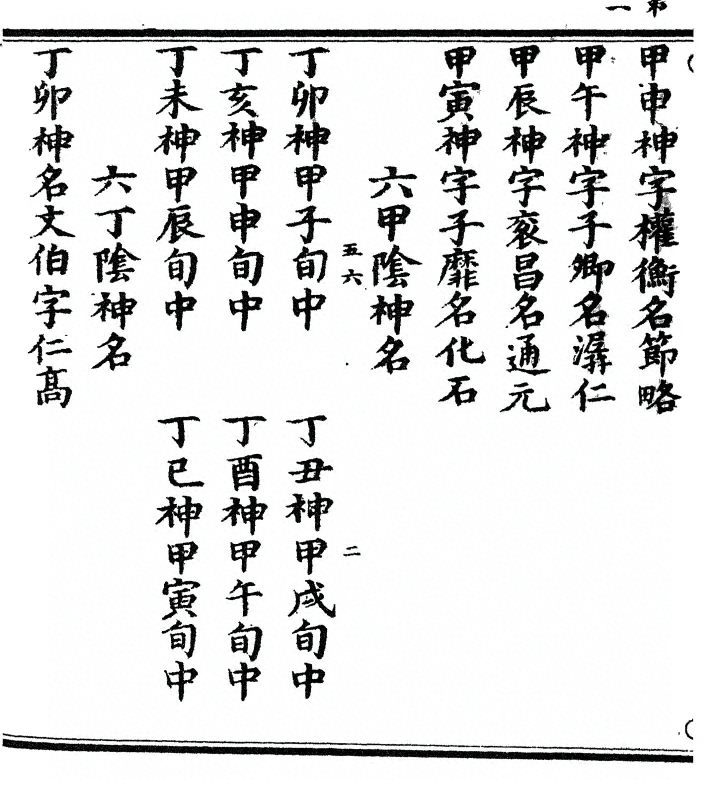 第一
甲申神字權衡名節略
甲午神字子卿名潺仁
甲辰神字衮昌名通元
甲寅神字子靡名化石
六甲陰神名
五六
二
丁卯神甲子旬中　丁丑神甲戌旬中
丁亥神甲申旬中　丁酉神甲午旬中
丁未神甲辰旬中　丁巳神甲寅旬中
六丁陰神名
丁卯神名文伯字仁高